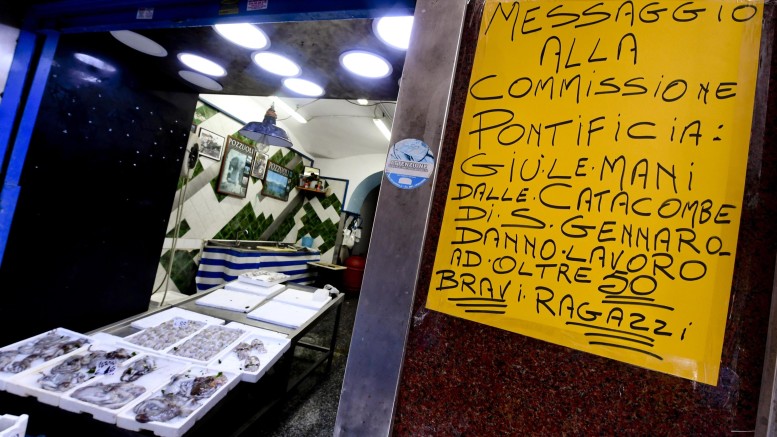 MESSAGGIO
ALLA
COMMISSIONE
PONTIFICIA:
GIÙ.LE.MANI
DALLE.CATACOMBE
DI.S.GENNARO_
DANNO.LAVORO
AD.OLTRE 50
BRAVI.RAGAZZi
POZZUOLI
POZZUOLI